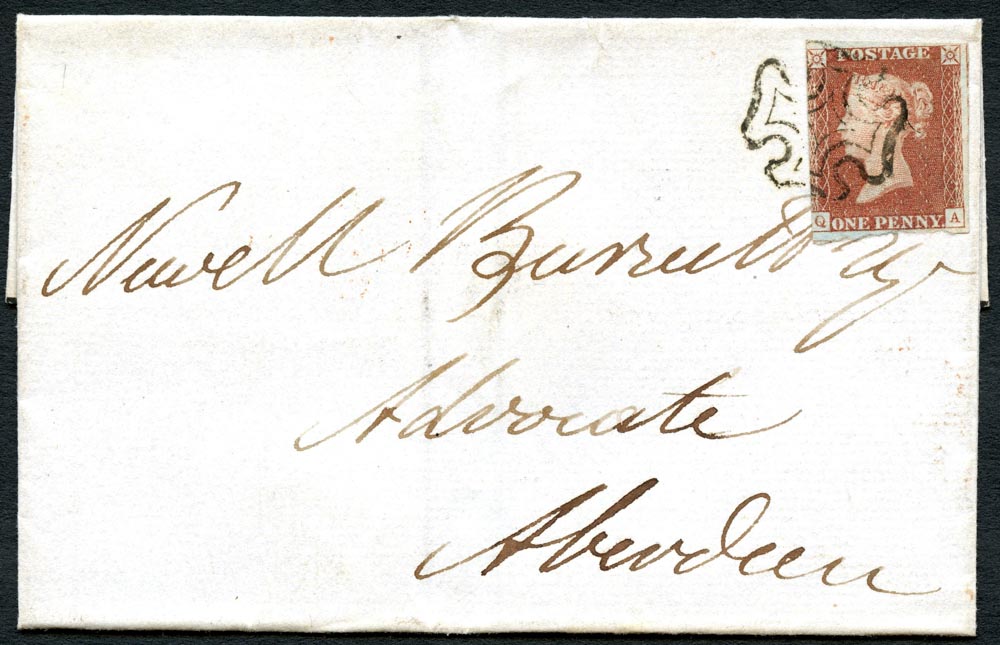 POSTAGE
Q ONE PENNY A
Newell Burnett Esqr
Advocate
Aberdeen